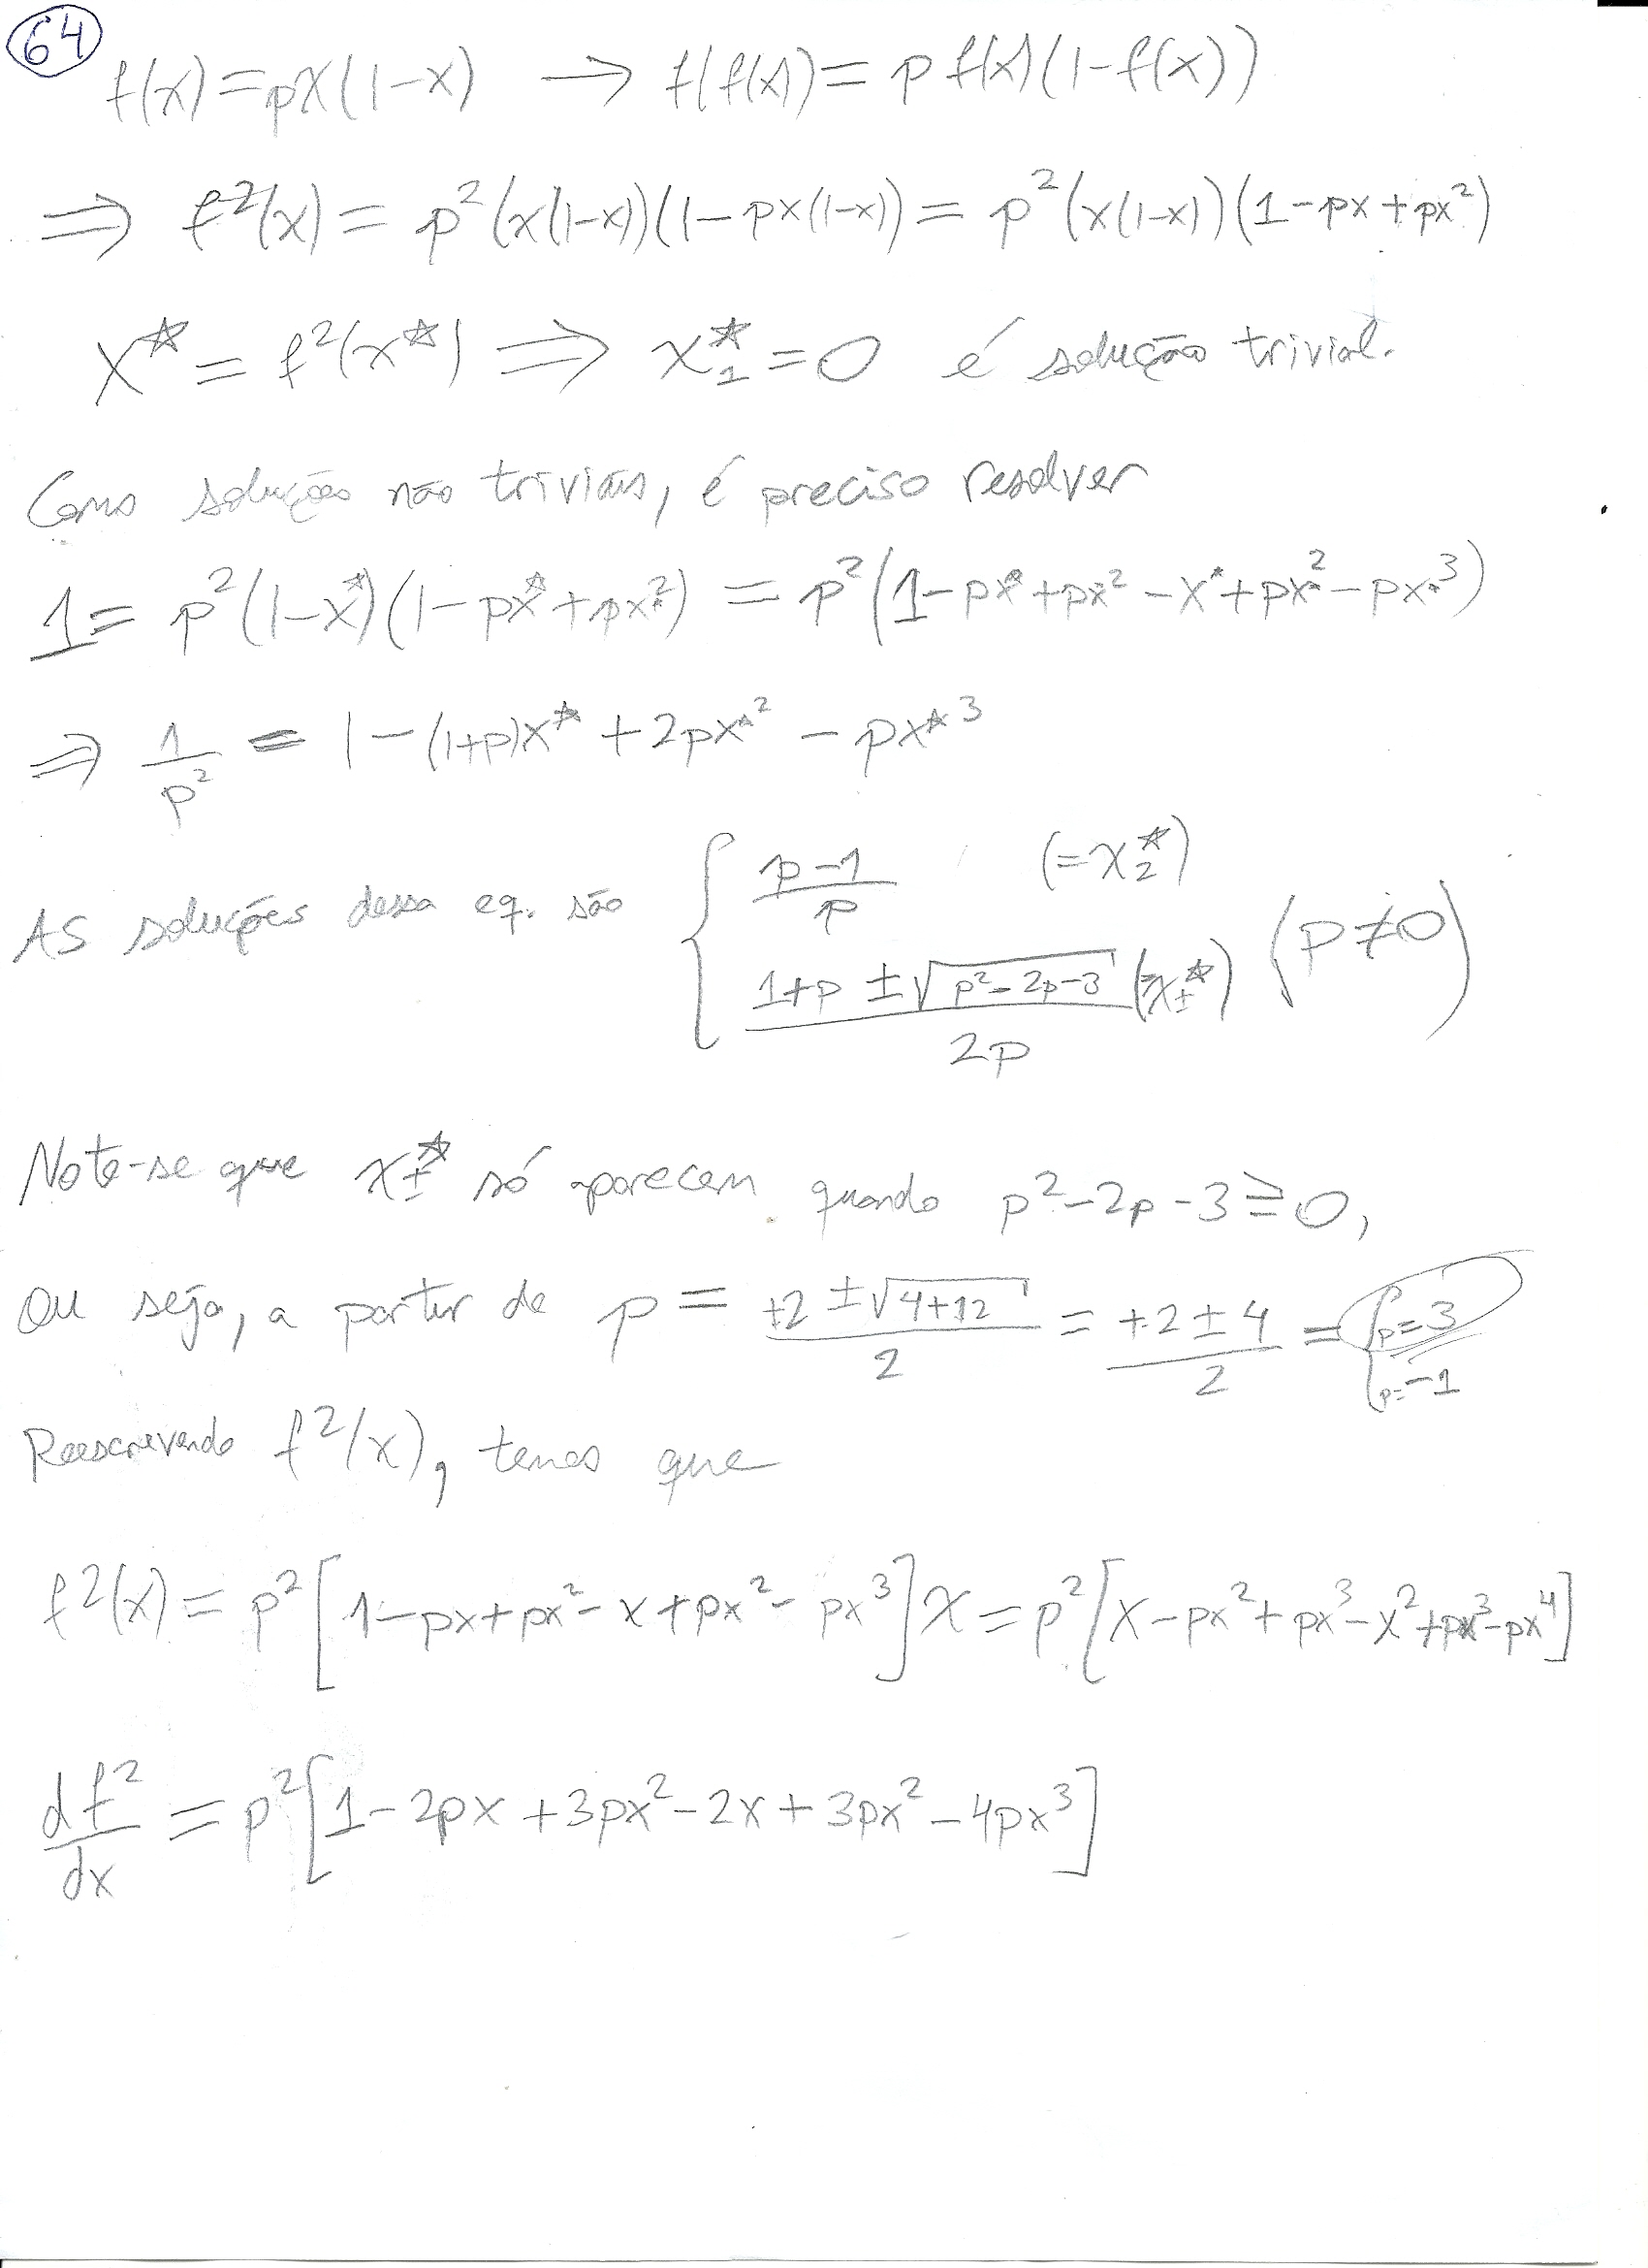 64
f(x) = px(1-x) → f(f(x)) = p f(x)(1-f(x))
⇒ f²(x) = p²(x(1-x))(1-px(1-x)) = p²(x(1-x))(1-px+px²)
x* = f²(x*) ⇒ x₁* = 0 é solução trivial.
Como soluções não triviais, é preciso resolver
1 = p²(1-x*)(1-px*+px*²) = p²(1-px*+px*²-x*+px*²-px*³)
⇒ 1/p² = 1-(1+p)x* + 2px*² - px*³
As soluções dessa eq. são { (p-1)/p (=x₂*)
(1+p ± √(p²-2p-3))/2p (=x±*) (p≠0)
Note-se que x±* só aparecem quando p²-2p-3 ≥ 0,
ou seja, a partir de p = (+2 ± √(4+12))/2 = (+2 ± 4)/2 = { p=3
p=-1
Reescrevendo f²(x), temos que
f²(x) = p²[1-px+px²-x+px²-px³]x = p²[x-px²+px³-x²+px³-px⁴]
df²/dx = p²[1-2px+3px²-2x+3px²-4px³]